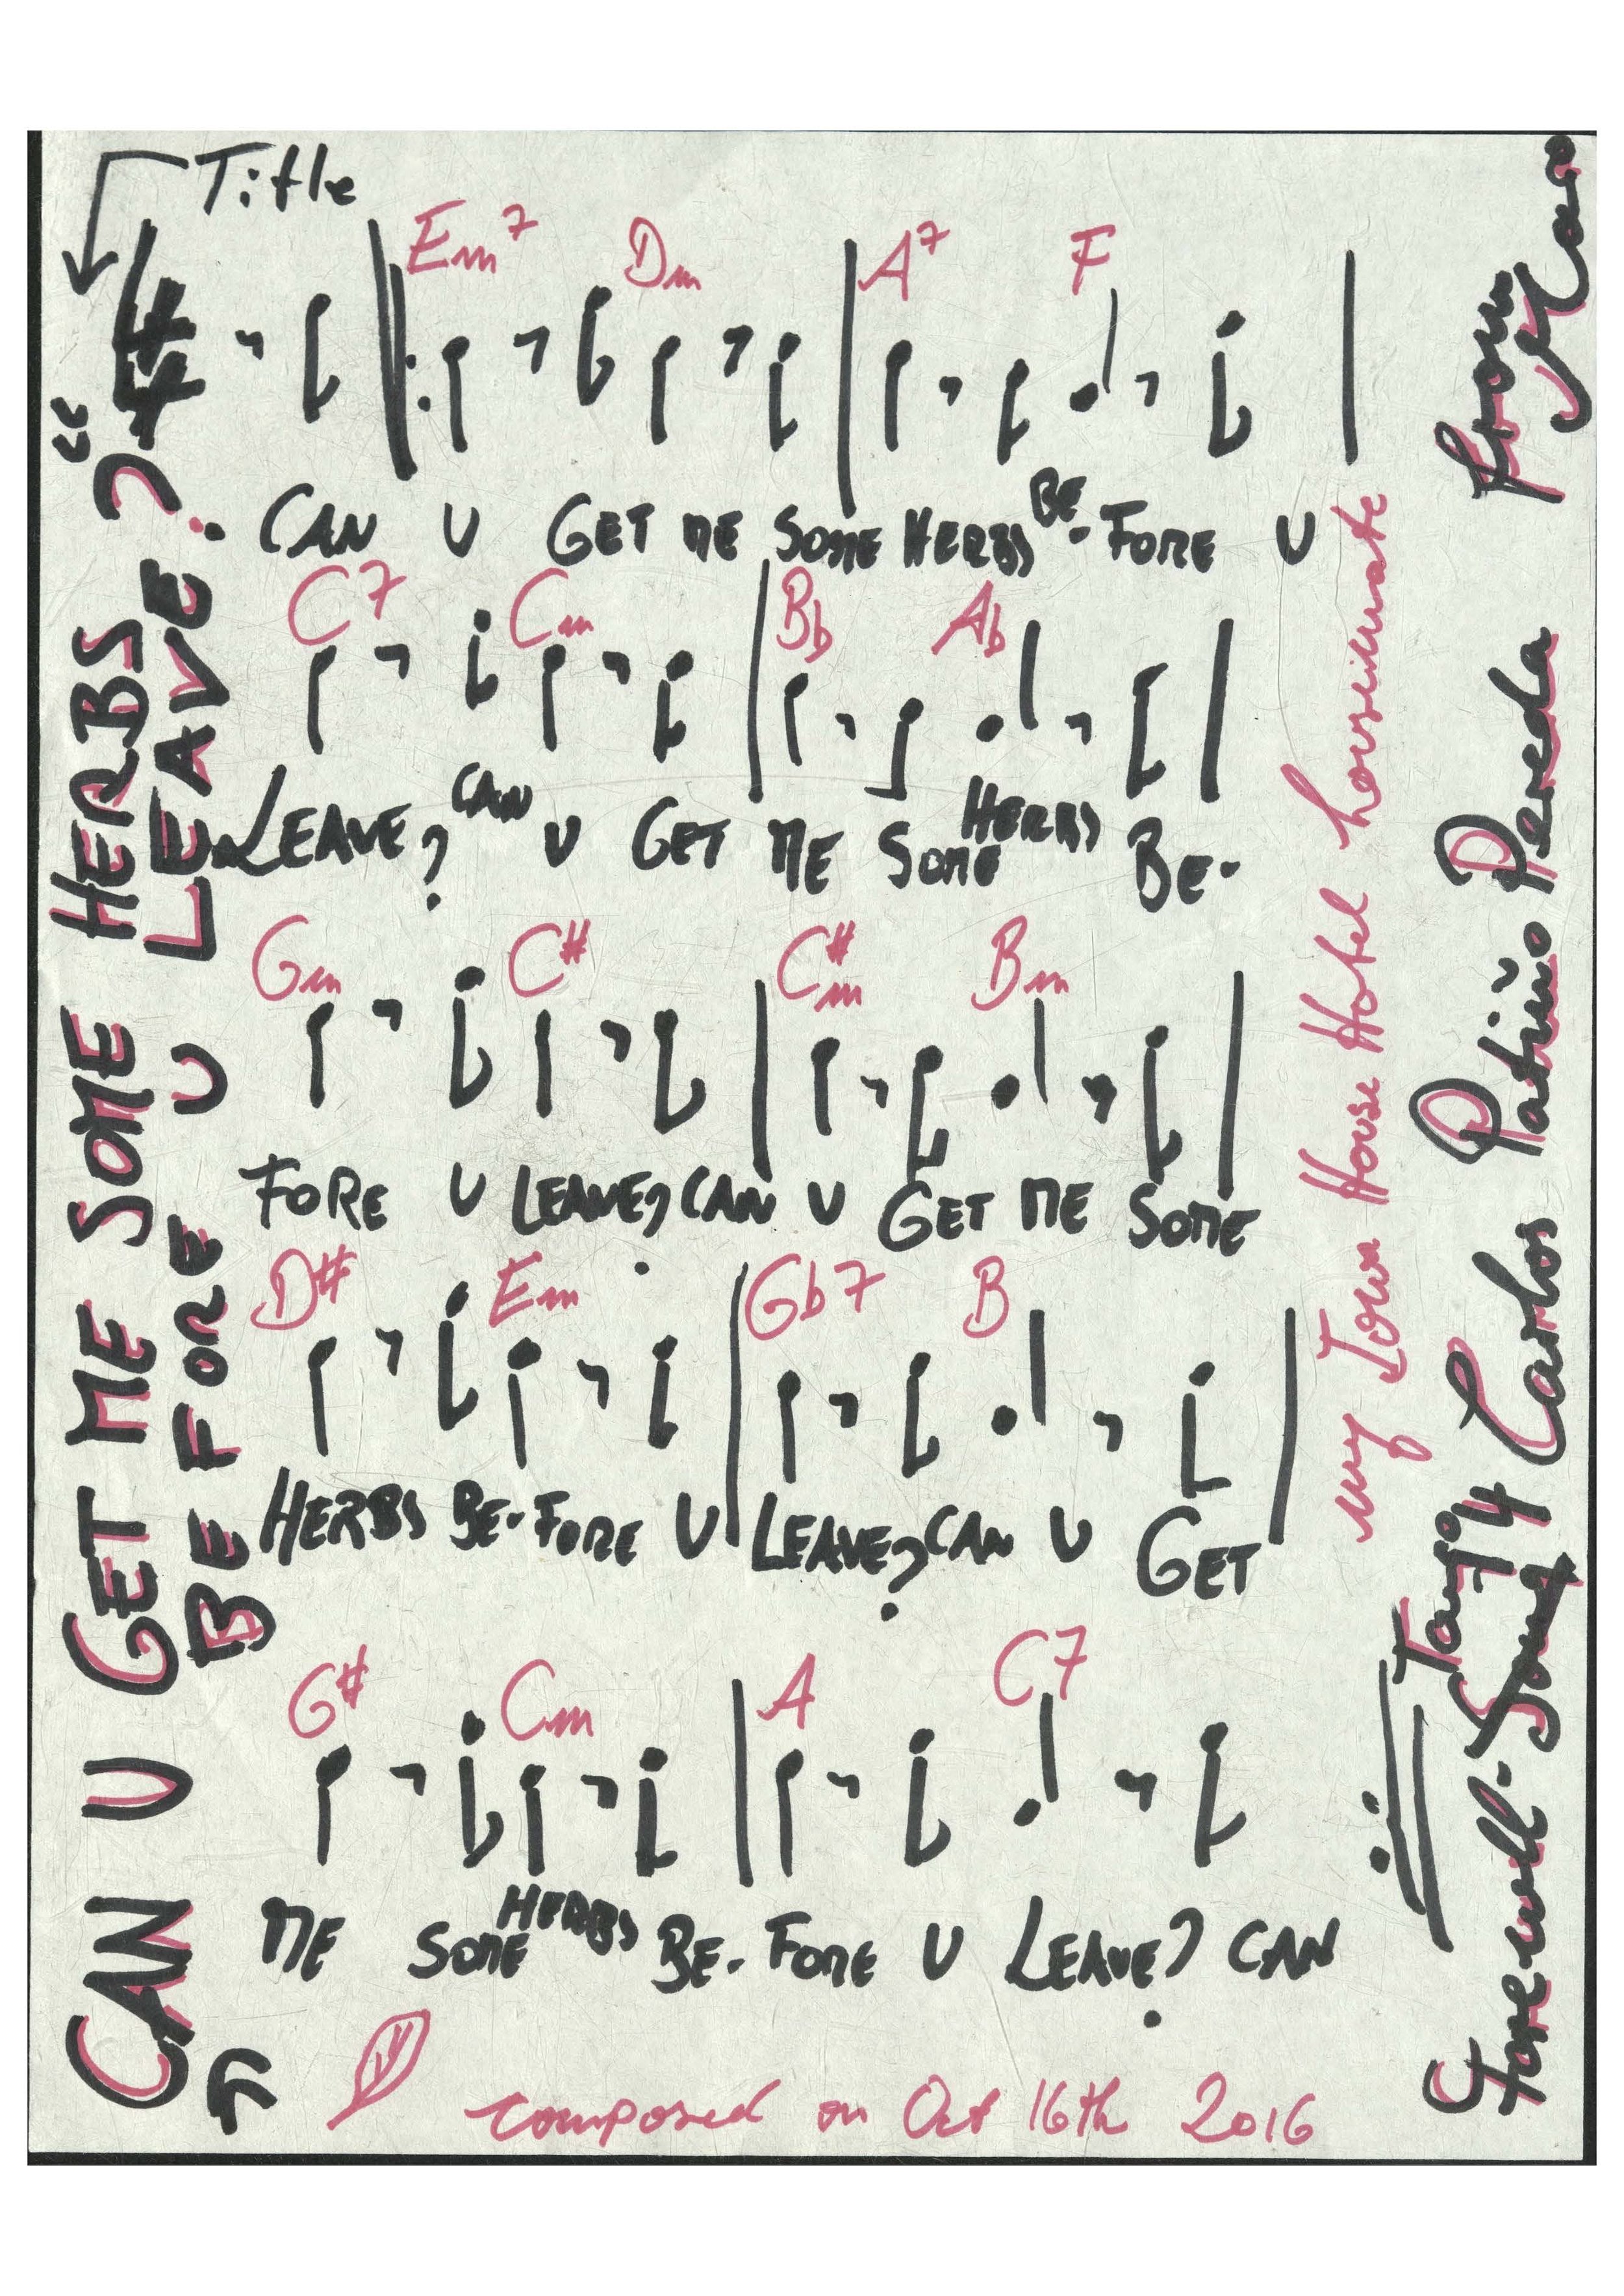 Title
"CAN U GET ME SOME HERBS
BEFORE U LEAVE?"
4/4
Em7 Dm A7 F
CAN U GET ME SOME HERBS BE-FORE U
C7 Cm Bb Ab
LEAVE? CAN U GET ME SOME HERBS BE-
Gm C# C#m Bm
FORE U LEAVE? CAN U GET ME SOME
D# Em Gb7 B
HERBS BE-FORE U LEAVE? CAN U GET
G# Cm A C7
ME SOME HERBS BE-FORE U LEAVE? CAN
composed on Oct 16th 2016
my Iowa House Hotel housemate
Farewell-Song 4 Carlos Patiño Pereda from